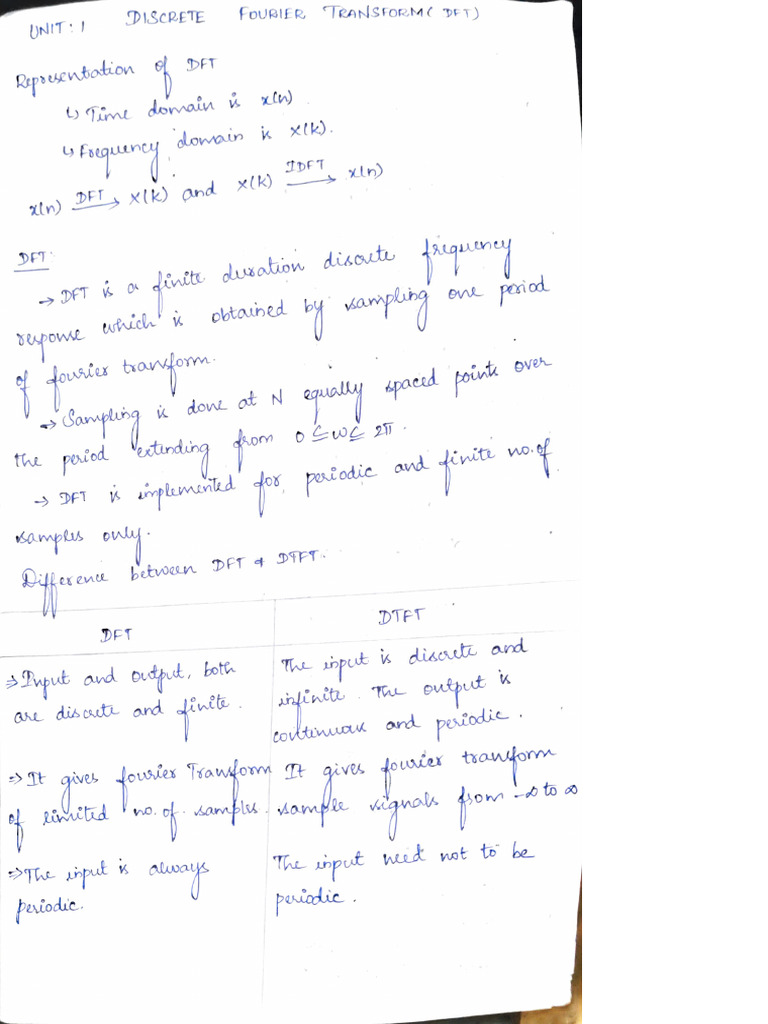 UNIT: 1 DISCRETE FOURIER TRANSFORM( DFT)
Representation of DFT
↳ Time domain is x(n)
↳ Frequency domain is X(k).
x(n) DFT→ X(k) and X(k) IDFT→ x(n)
DFT:
→ DFT is a finite duration discrete frequency
response which is obtained by sampling one period
of fourier transform.
→ Sampling is done at N equally spaced points over
the period extending from 0 ⊆ ω ⊆ 2π.
→ DFT is implemented for periodic and finite no. of
samples only.
Difference between DFT & DTFT.
DFT DTFT
⇒ Input and output, both The input is discrete and
are discrete and finite. infinite. The output is
continuous and periodic.
⇒ It gives fourier Transform It gives fourier transform
of limited no. of samples. sample signals from -∞ to ∞
⇒ The input is always The input need not to be
periodic. periodic.